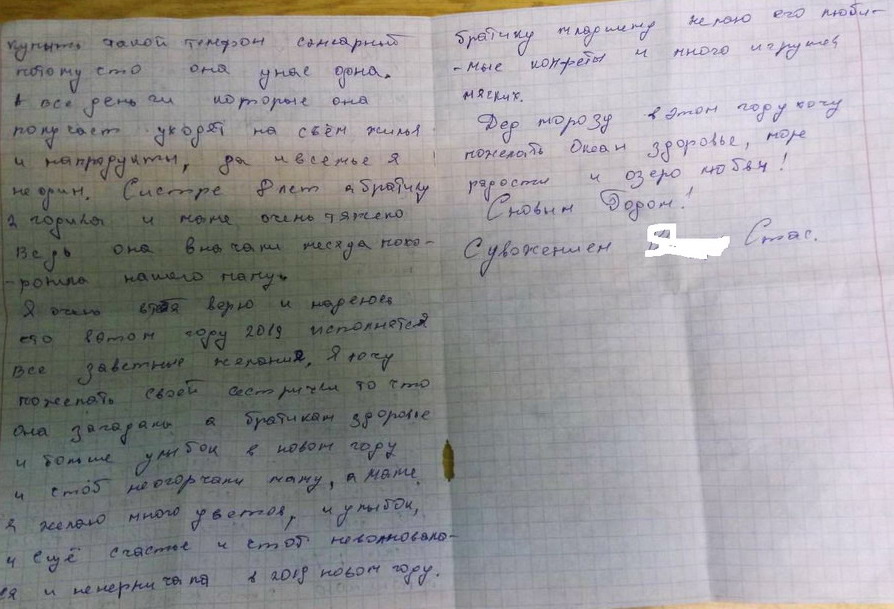 купить такой телефон сенсарный
потому сто она унас одна.
А все деньги которые она
получает уходят на сьём жилья
и напродукты, да ивсемье я
не один. Систре 8 лет абратику
2 годика и маме очень тяжело
Ведь она вначали месяца похо-
-ронила нашего папу.
Я очень верю и надеюсь
сто вэтом году 2019 исполнятся
все заветные желания, Я хочу
пожелать своей сестричьки то что
она загадала а братикам здоровье
и больше улыбок в новом году
и стоб неогорчали маму, а маме
я желаю много цветов, и улыбок,
и ещё счастье и стоб неволновала-
ся и ненервничала в 2019 новом году.
братику младшему желаю его люби-
-мые конфеты и много игрушек
мяхких.
Дед морозу вэтом году хочу
пожелать Океан здоровье, море
радости и озеро любви!
Сновым Годом!
Сувожением Стас.